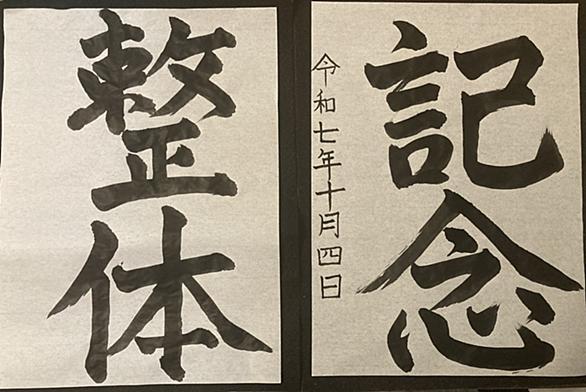 記念
令和七年十月四日
整体